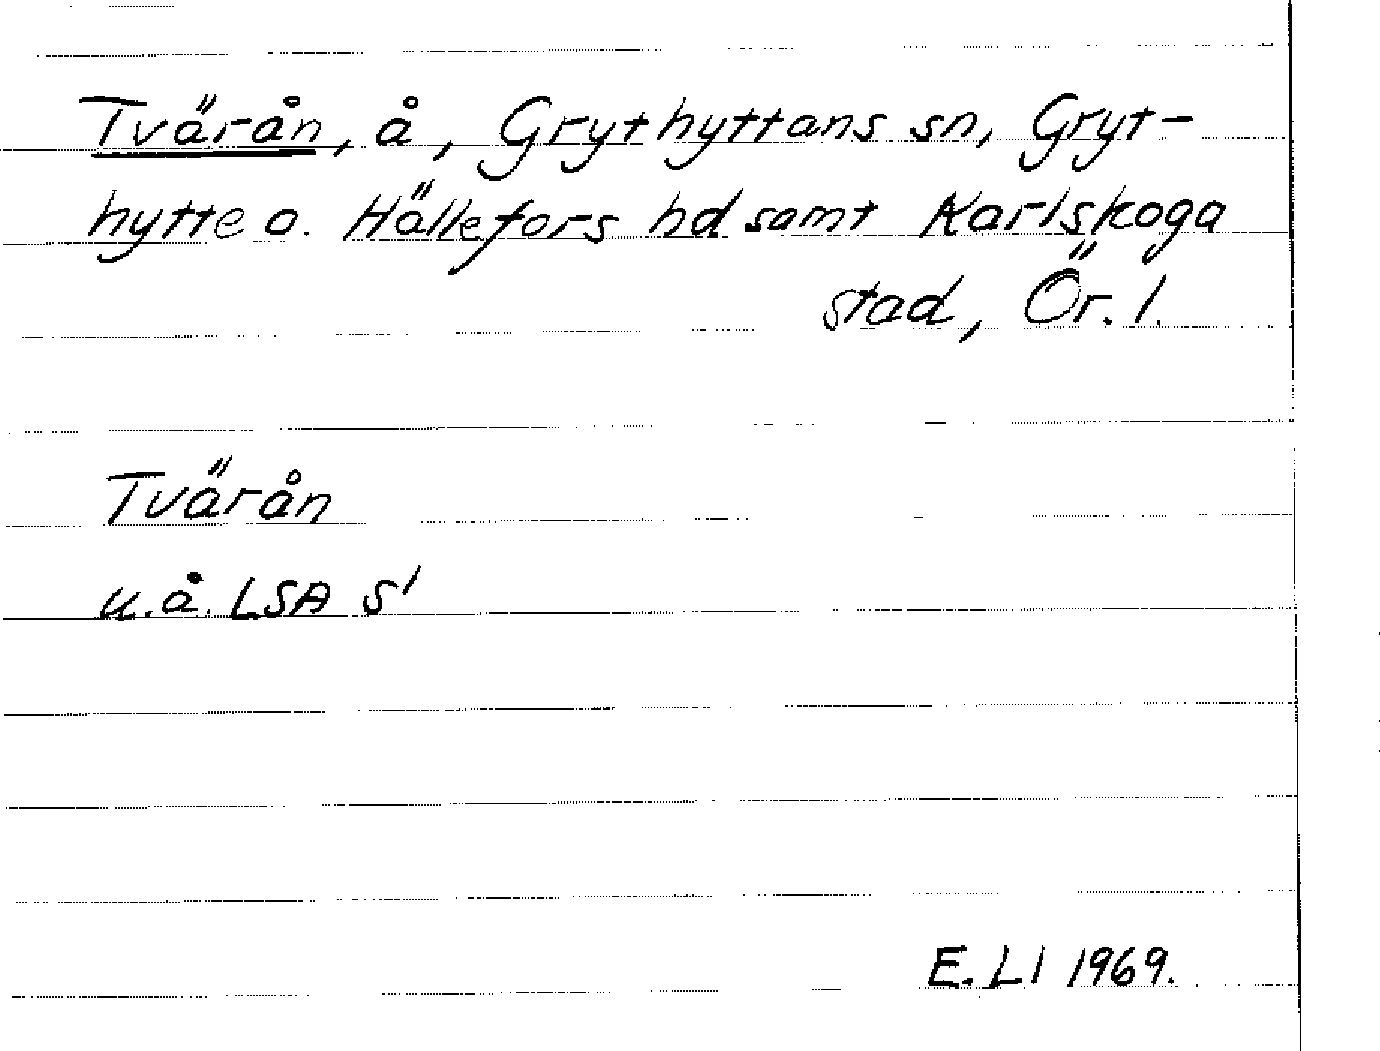 Tvärån, å, Grythyttans sn, Gryt-
hytte o. Hällefors hd samt Karlskoga
stad, Ör. l.
Tvärån
u.å. LSA S'
E. Ll 1969.